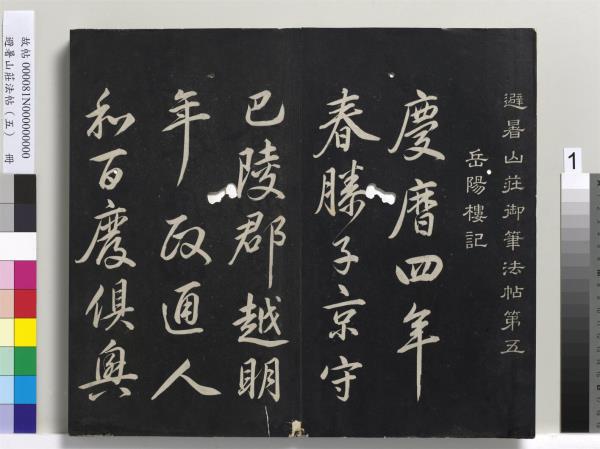 避暑山莊御筆法帖第五
岳陽樓記
慶曆四年
春滕子京守
巴陵郡越明
年政通人
和百廢俱興
故帖 000081N000000000
避暑山莊法帖（五） 冊
1